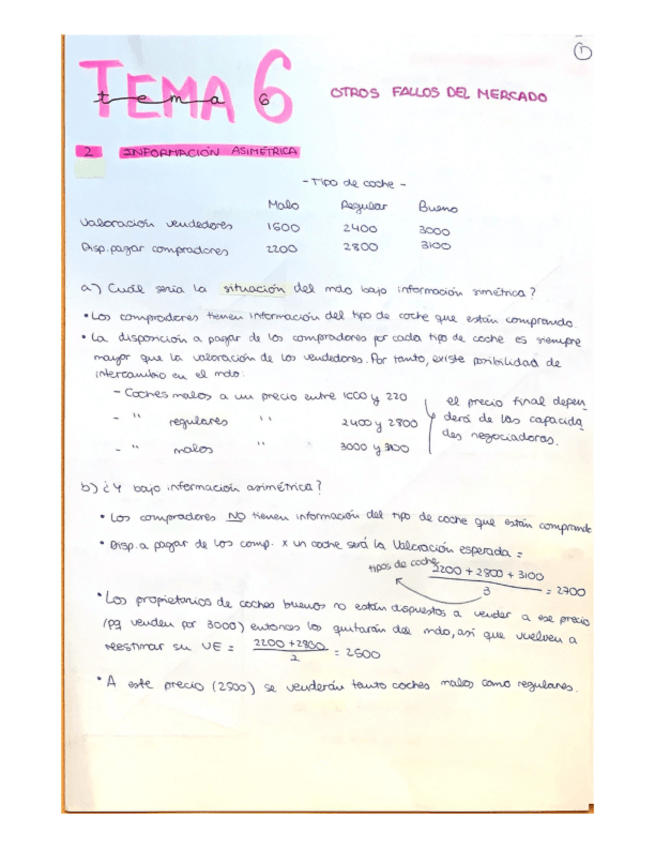 1
TEMA 6
tema 6
OTROS FALLOS DEL MERCADO
2 INFORMACIÓN ASIMÉTRICA
- Tipo de coche -
Malo Regular Bueno
Valoración vendedores 1600 2400 3000
Disp. pagar compradores 2200 2800 3100
a) Cuál sería la situación del mdo bajo información simétrica?
• Los compradores tienen información del tipo de coche que están comprando.
• La disposición a pagar de los compradores por cada tipo de coche es siempre
mayor que la valoración de los vendedores. Por tanto, existe posibilidad de
intercambio en el mdo:
- Coches malos a un precio entre 1600 y 220
- " regulares " 2400 y 2800
- " malos " 3000 y 3100
el precio final depen-
derá de las capacida
des negociadoras.
b) ¿Y bajo información asimétrica?
• Los compradores NO tienen información del tipo de coche que están comprande
• Disp. a pagar de los comp. x un coche será la Valoración esperada =
tipos de coche 2200 + 2800 + 3100
3 = 2700
• Los propietarios de coches buenos no están dispuestos a vender a ese precio
(pq venden por 3000) entonces los quitarán del mdo, así que vuelven a
reestimar su VE = 2200 + 2800
2 = 2500
• A este precio (2500) se venderán tanto coches malos como regulares.